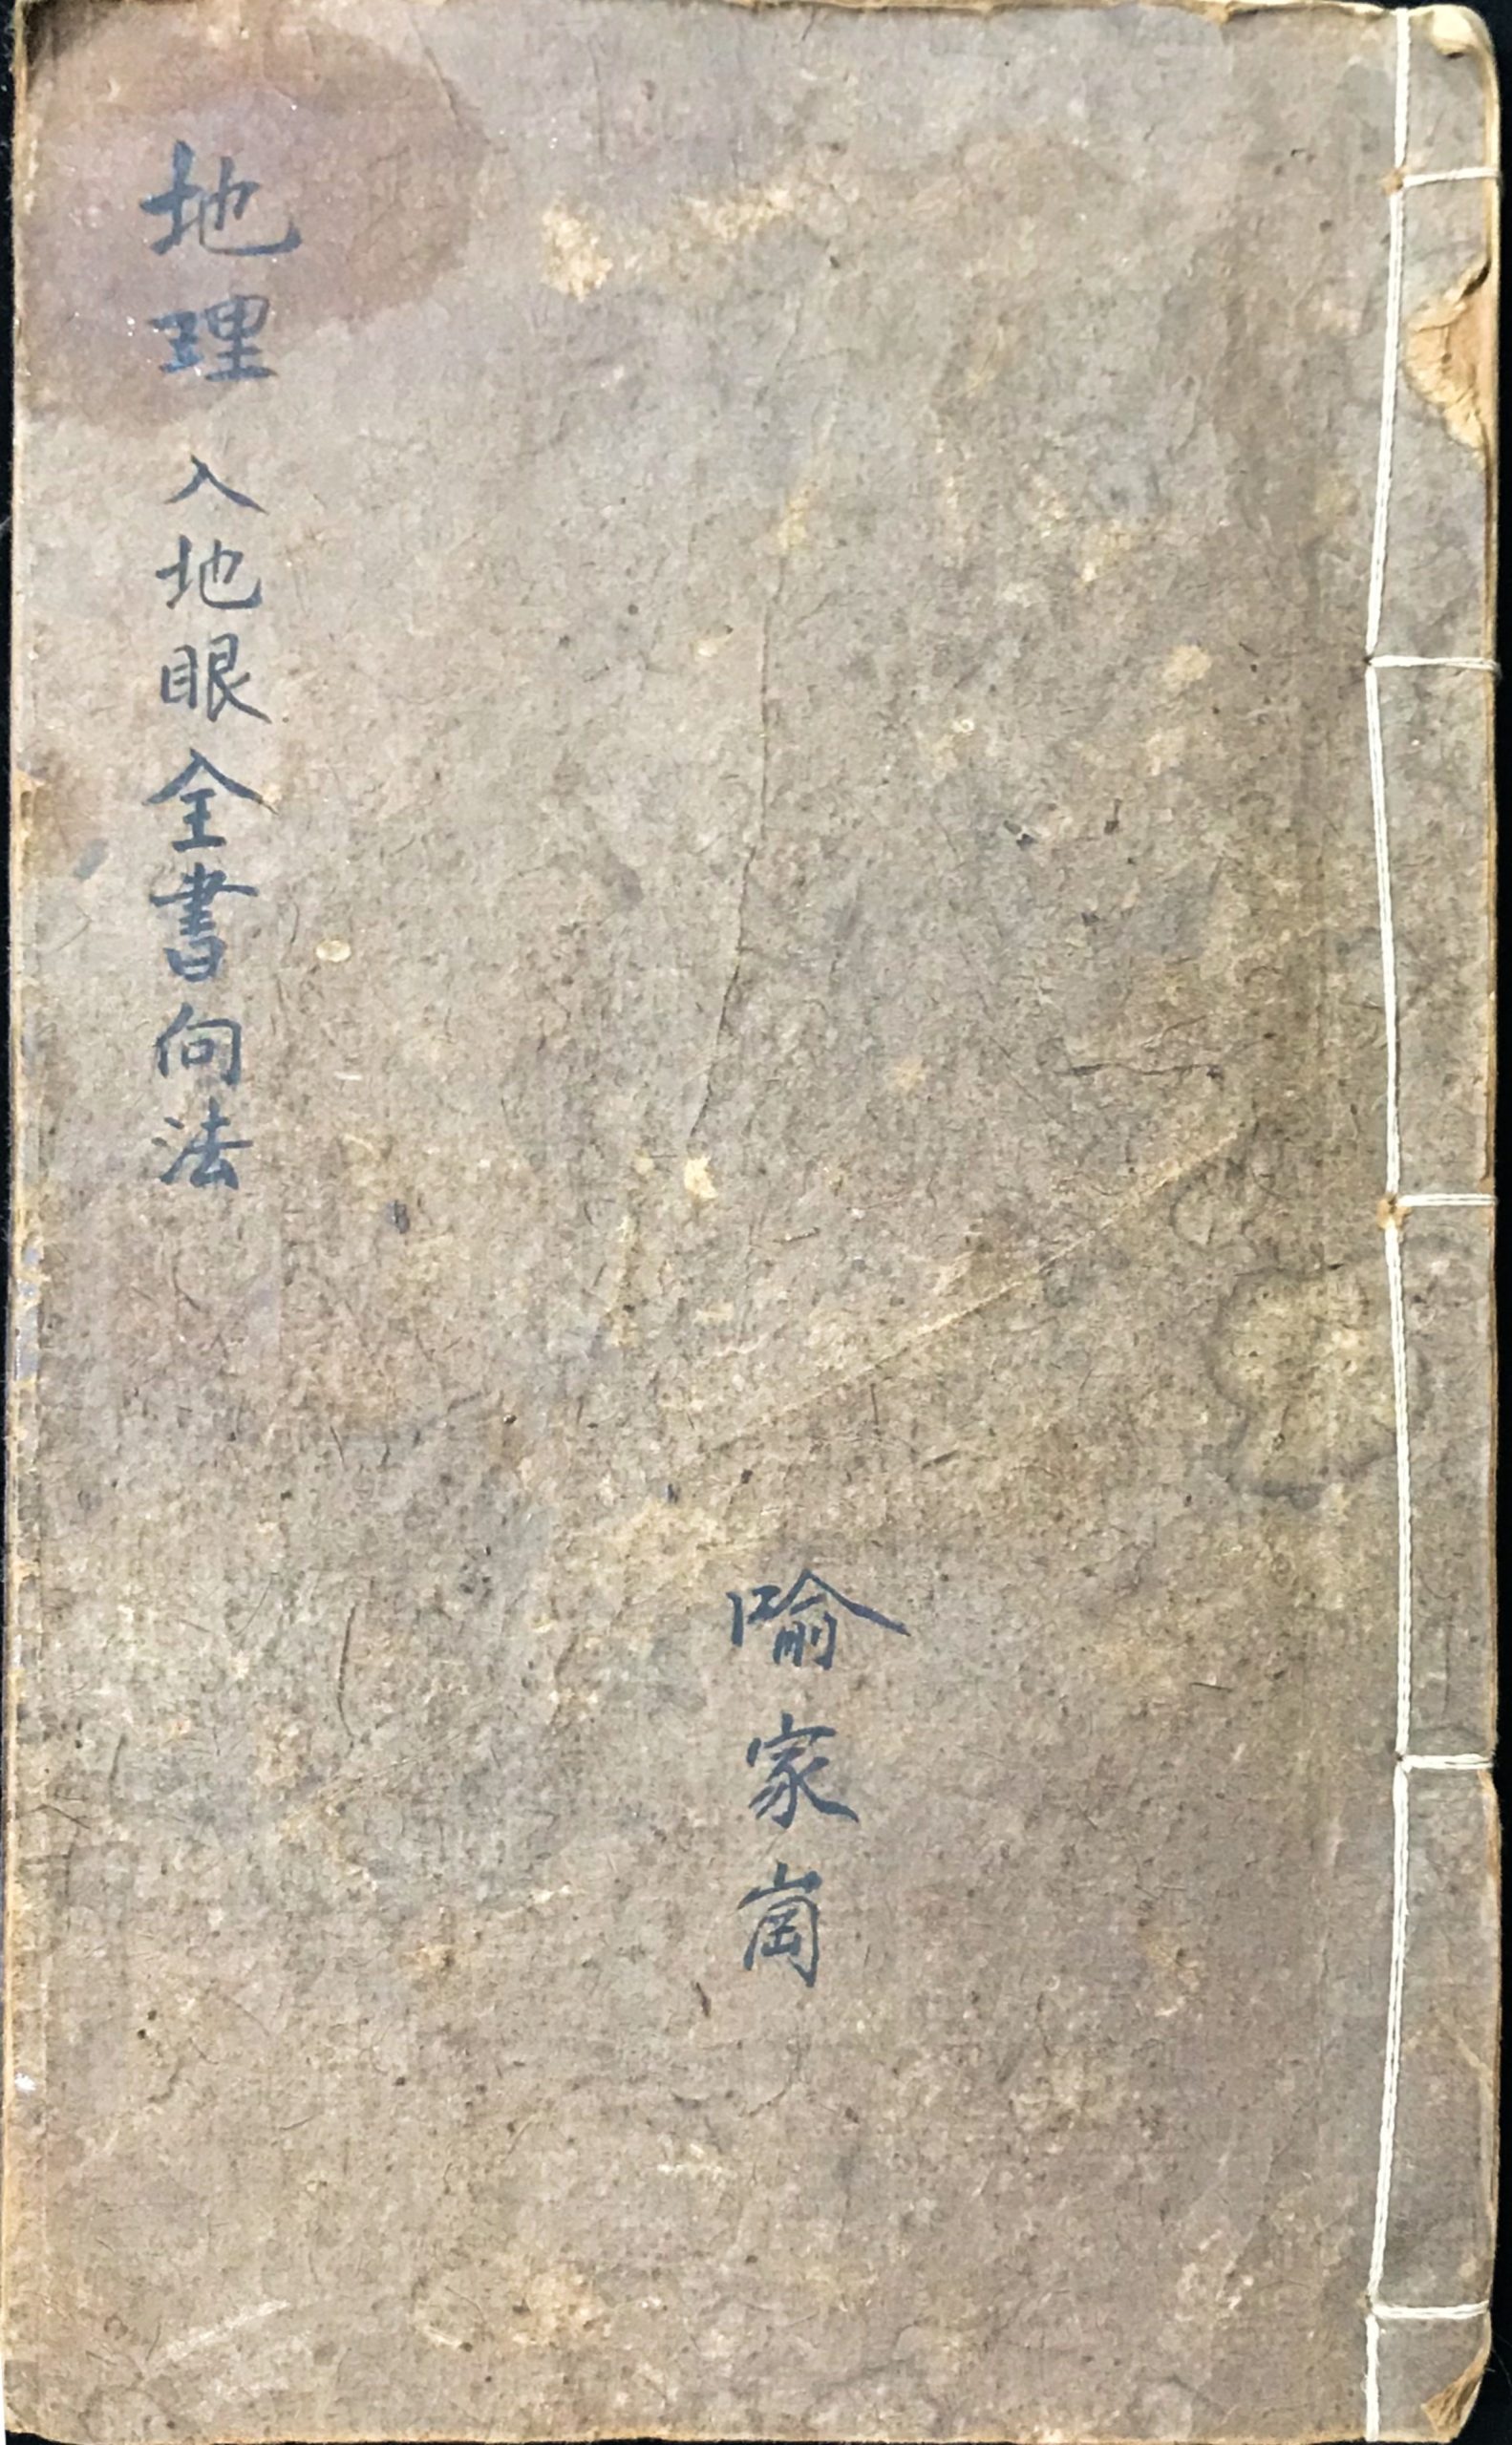 地理 入地眼全書向法
喻家崗